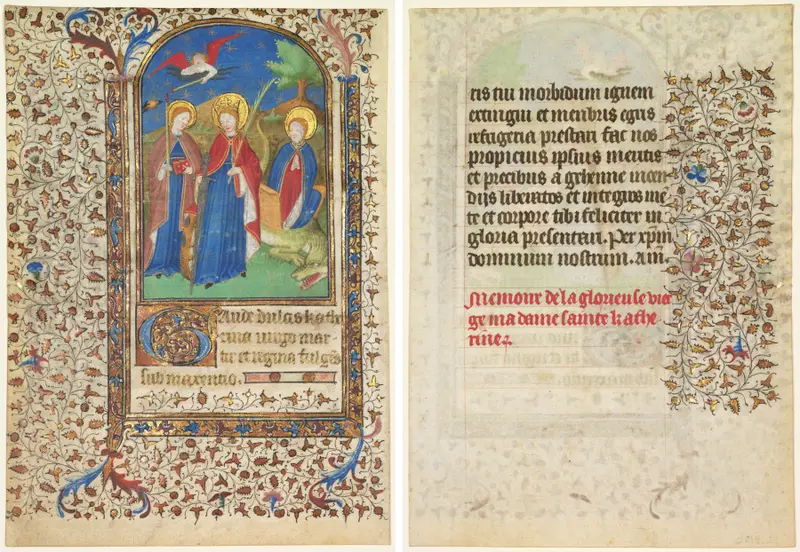 Gaude dulcis kathe
rina virgo mar
tir et regina fulgēs
sub maxentio.
tis tui morbidum ignem
extingui et menbris egris
refrigeria prestari fac nos
propicius ipsius meritis
et precibus a gehenne incen
dijs liberatos et integros mē
te et corpore tibi feliciter in
gloria presentari. Per xp̄m
dominum nostrum. am̄.
Memoire de la glorieuse vier
ge ma dame sainte kathe
rine.